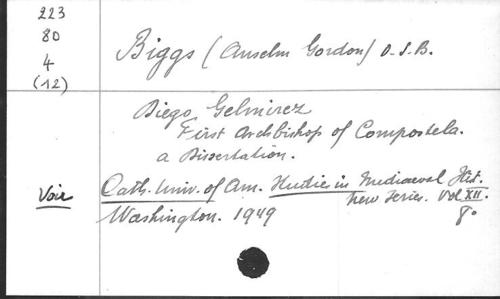 223
80
4
(12)
Biggs (Anselm Gordon) O.S.B.
Diego Gelmirez
First Archbishop of Compostela.
a Dissertation.
Voir
Cath. Univ. of Am. Studies in Mediaeval Hist.
New Series. Vol XII.
Washington. 1949
8°